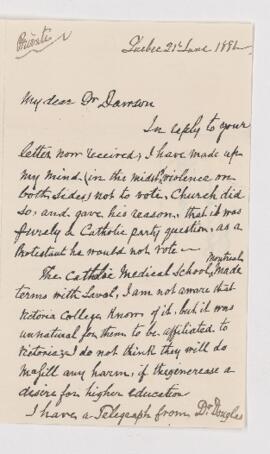 Private
Quebec 21st June 1881
My dear Dr Dawson
In reply to your
letter now received, I have made up
my mind (in the midst violence on
both sides) not to vote, Church did
so, and gave his reason, that it was
purely a Catholic party question, as a
Protestant he would not vote —
The Catholic Medical School, Montreal, made
terms with Laval, I am not aware that
Victoria College Know of it, but it was
unnatural for them to be affiliated to
Victoria; I do not think they will do
McGill any harm, if they encrease a
desire for higher education
I have a Telegraph from Dr Douglas